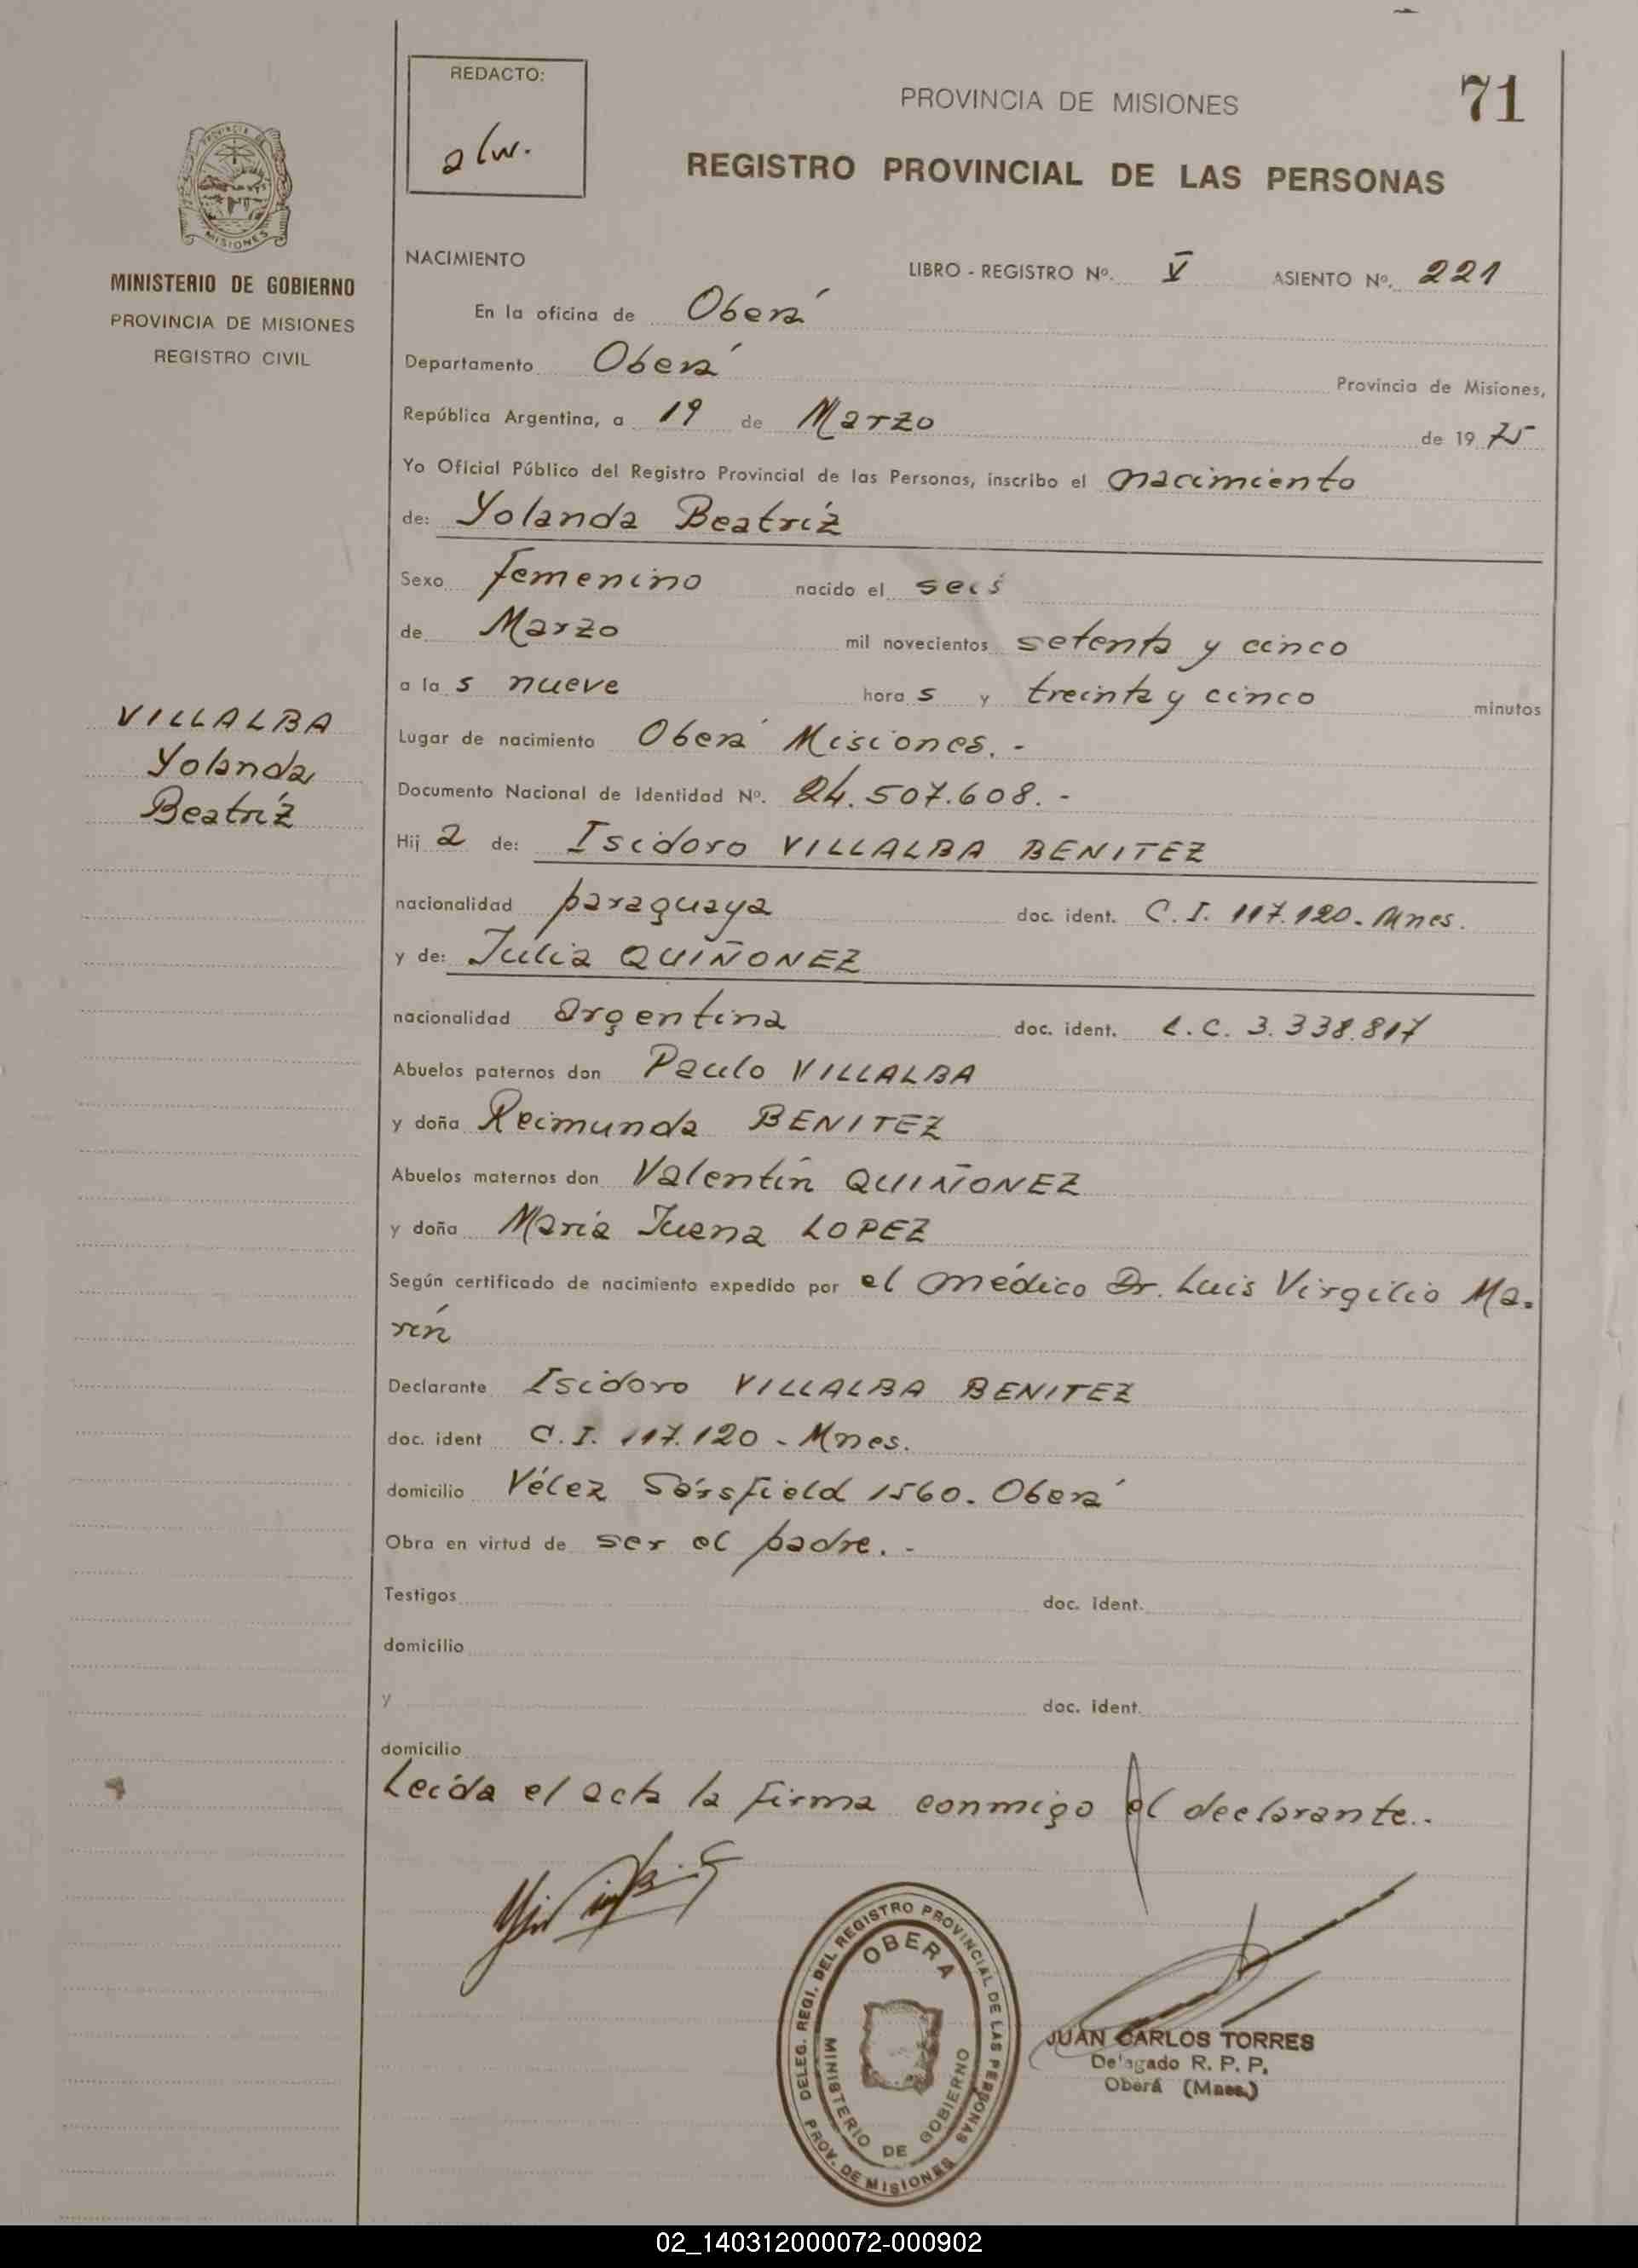 REDACTO:
alw.
PROVINCIA DE MISIONES
71
REGISTRO PROVINCIAL DE LAS PERSONAS
PROVINCIA DE
MISIONES
MINISTERIO DE GOBIERNO
PROVINCIA DE MISIONES
REGISTRO CIVIL
NACIMIENTO
LIBRO - REGISTRO Nº. V ASIENTO Nº. 221
En la oficina de Oberá
Departamento Oberá Provincia de Misiones,
República Argentina, a 19 de Marzo de 1975
Yo Oficial Público del Registro Provincial de las Personas, inscribo el nacimiento
de: Yolanda Beatríz
Sexo femenino nacido el seis
de Marzo mil novecientos setenta y cinco
a las nueve horas y treinta y cinco minutos
VILLALBA
Yolanda
Beatríz
Lugar de nacimiento Oberá Misiones. -
Documento Nacional de Identidad Nº. 24.507.608. -
Hija de: Isidoro VILLALBA BENITEZ
nacionalidad paraguaya doc. ident. C. I. 117.120. Mnes.
y de: Julia QUIÑONEZ
nacionalidad argentina doc. ident. L. C. 3.338.817
Abuelos paternos don Paulo VILLALBA
y doña Reimunda BENITEZ
Abuelos maternos don Valentín QUIÑONEZ
y doña María Juana LOPEZ
Según certificado de nacimiento expedido por el médico Dr. Luis Virgilio Ma-
rín
Declarante Isidoro VILLALBA BENITEZ
doc. ident C. I. 117.120 - Mnes.
domicilio Vélez Sársfield 1560. Oberá
Obra en virtud de ser el padre. -
Testigos doc. ident.
domicilio
y doc. ident.
domicilio
Leída el acta la firma conmigo el declarante..
DELEG. REGI. DEL REGISTRO PROVINCIAL DE LAS PERSONAS
OBERA
MINISTERIO DE GOBIERNO
PROV. DE MISIONES
JUAN CARLOS TORRES
Delegado R. P. P.
Oberá (Mnes.)
02_140312000072-000902